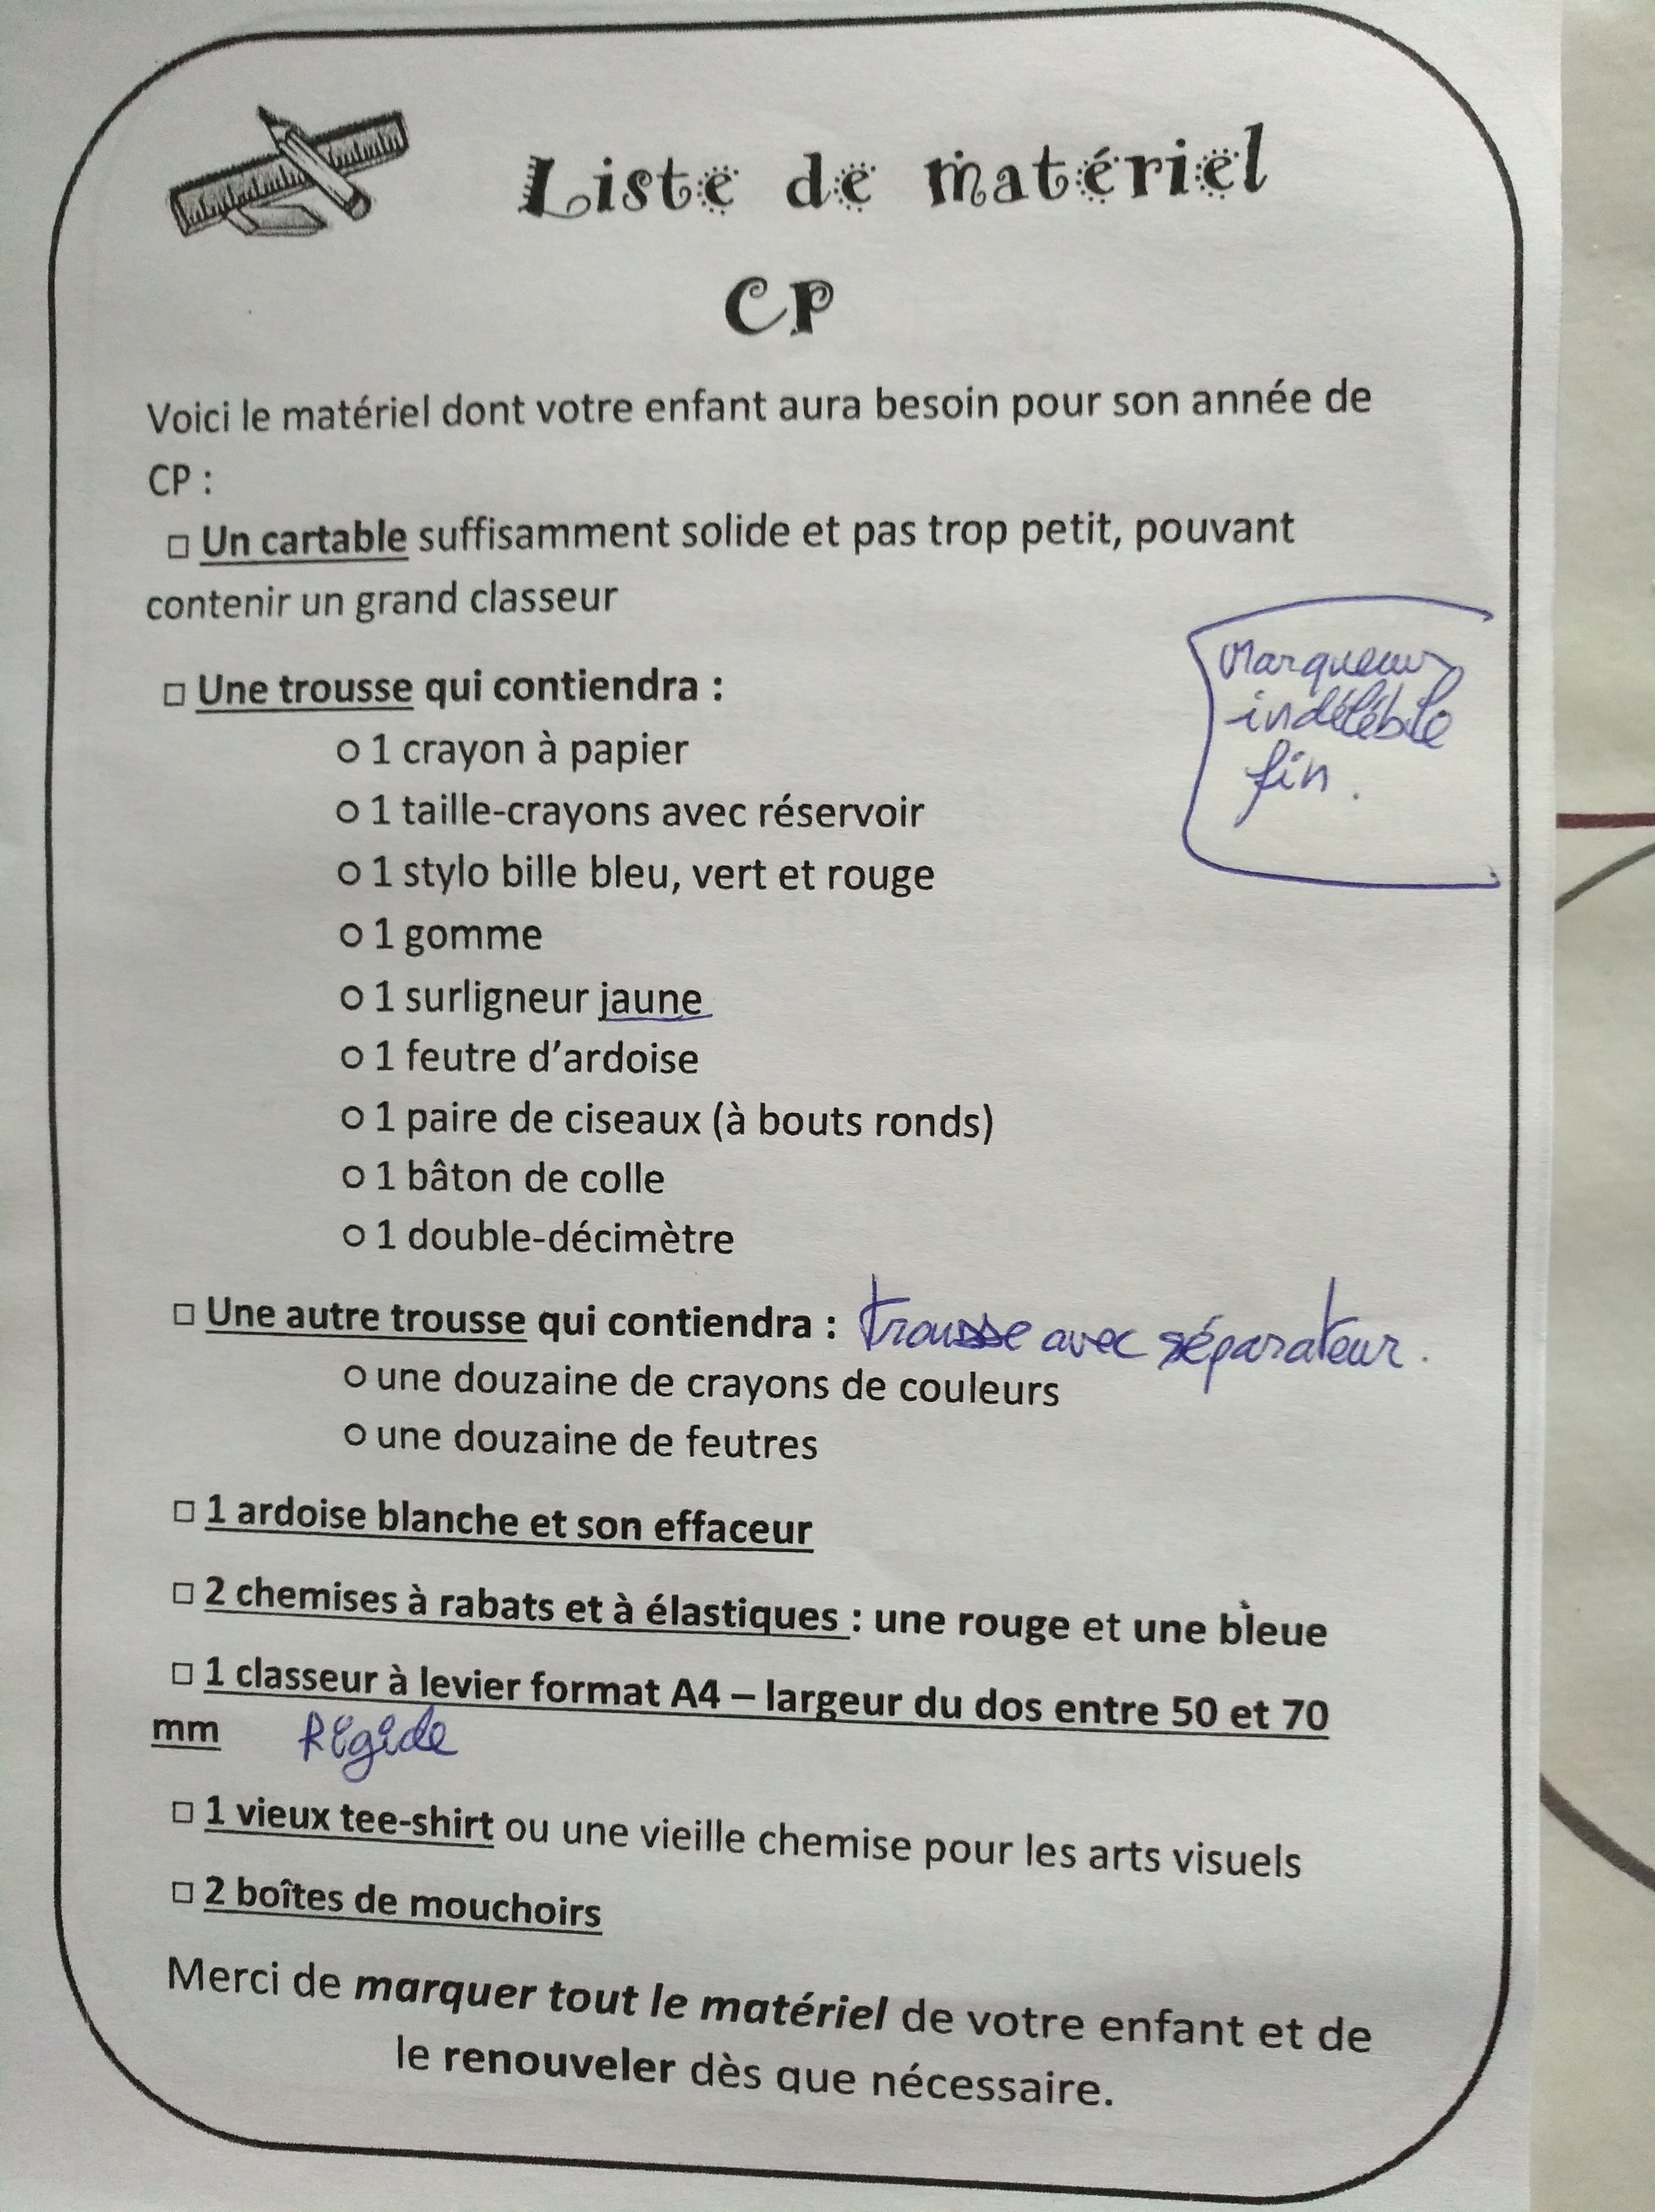 Liste de matériel
CP
Voici le matériel dont votre enfant aura besoin pour son année de
CP :
□ Un cartable suffisamment solide et pas trop petit, pouvant
contenir un grand classeur
Marqueur
indélébile
fin.
□ Une trousse qui contiendra :
o 1 crayon à papier
o 1 taille-crayons avec réservoir
o 1 stylo bille bleu, vert et rouge
o 1 gomme
o 1 surligneur jaune
o 1 feutre d’ardoise
o 1 paire de ciseaux (à bouts ronds)
o 1 bâton de colle
o 1 double-décimètre
□ Une autre trousse qui contiendra : trousse avec séparateur.
o une douzaine de crayons de couleurs
o une douzaine de feutres
□ 1 ardoise blanche et son effaceur
□ 2 chemises à rabats et à élastiques : une rouge et une bleue
□ 1 classeur à levier format A4 – largeur du dos entre 50 et 70
mm Rigide
□ 1 vieux tee-shirt ou une vieille chemise pour les arts visuels
□ 2 boîtes de mouchoirs
Merci de marquer tout le matériel de votre enfant et de
le renouveler dès que nécessaire.